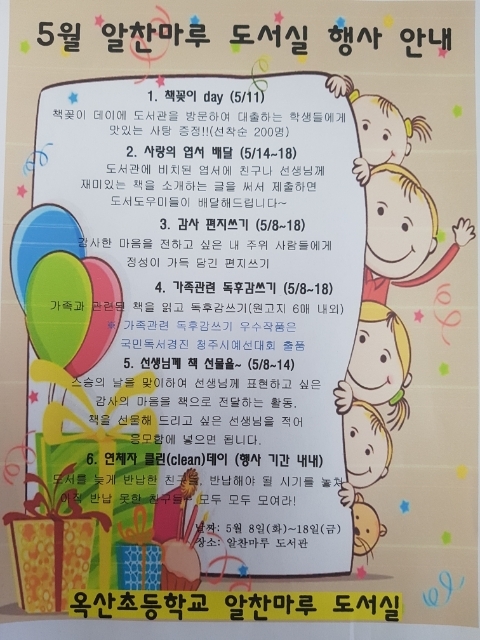 5월 알찬마루 도서실 행사 안내
1. 책꽂이 day (5/11)
책꽂이 데이에 도서관을 방문하여 대출하는 학생들에게
맛있는 사탕 증정!!(선착순 200명)
2. 사랑의 엽서 배달 (5/14~18)
도서관에 비치된 엽서에 친구나 선생님께
재미있는 책을 소개하는 글을 써서 제출하면
도서도우미들이 배달해드립니다~
3. 감사 편지쓰기 (5/8~18)
감사한 마음을 전하고 싶은 내 주위 사람들에게
정성이 가득 담긴 편지쓰기
4. 가족관련 독후감쓰기 (5/8~18)
가족과 관련된 책을 읽고 독후감쓰기(원고지 6매 내외)
※ 가족관련 독후감쓰기 우수작품은
국민독서경진 청주시예선대회 출품
5. 선생님께 책 선물을~ (5/8~14)
스승의 날을 맞이하여 선생님께 표현하고 싶은
감사의 마음을 책으로 전달하는 활동.
책을 선물해 드리고 싶은 선생님을 적어
응모함에 넣으면 됩니다.
6. 연체자 클린(clean)데이 (행사 기간 내내)
도서를 늦게 반납한 친구들, 반납해야 될 시기를 놓쳐
아직 반납 못한 친구들~ 모두 모두 모여라!
날짜: 5월 8일(화)~18일(금)
장소: 알찬마루 도서관
옥산초등학교 알찬마루 도서실